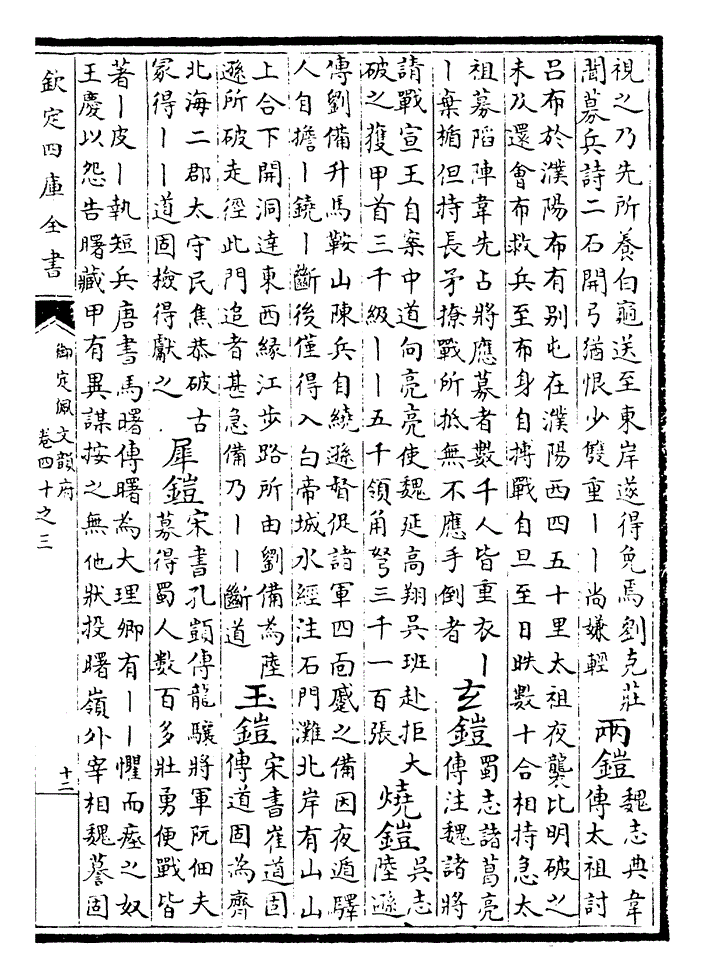 視之乃先所養白龜送至東岸遂得免焉劉克莊
聞募兵詩二石開弓猶恨少雙重丨丨尚嫌輕
兩鎧
魏志典韋
傳太祖討
呂布於濮陽布有别屯在濮陽西四五十里太祖夜襲比明破之
未及還會布救兵至布身自搏戰自旦至日昳數十合相持急太
祖募陷陣韋先占將應募者數千人皆重衣丨
丨棄楯但持長矛撩戰所抵無不應手倒者
玄鎧
蜀志諸葛亮
傳注魏諸將
請戰宣王自案中道向亮亮使魏延高翔吳班赴拒大
破之獲甲首三千級丨丨五千領角弩三千一百張
燒鎧
吳志
陸遜
傳劉備升馬鞍山陳兵自繞遜督促諸軍四面蹙之備因夜遁驛
人自擔丨鐃丨斷後僅得入白帝城水經注石門灘北岸有山山
上合下開洞達東西緣江步路所由劉備為陸
遜所破走徑此門追者甚急備乃丨丨斷道
玉鎧
宋書崔道固
傳道固為齊
北海二郡太守民焦恭破古
冢得丨丨道固檢得獻之
犀鎧
宋書孔顗傳龍驤將軍阮佃夫
募得蜀人數百多壯勇便戰皆
著丨皮丨執短兵唐書馬曙傳曙為大理卿有丨丨懼而瘞之奴
王慶以怨告曙藏甲有異謀按之無他狀投曙嶺外宰相魏謩固
欽定四庫全書
御定佩文韻府
卷四十之三
十二